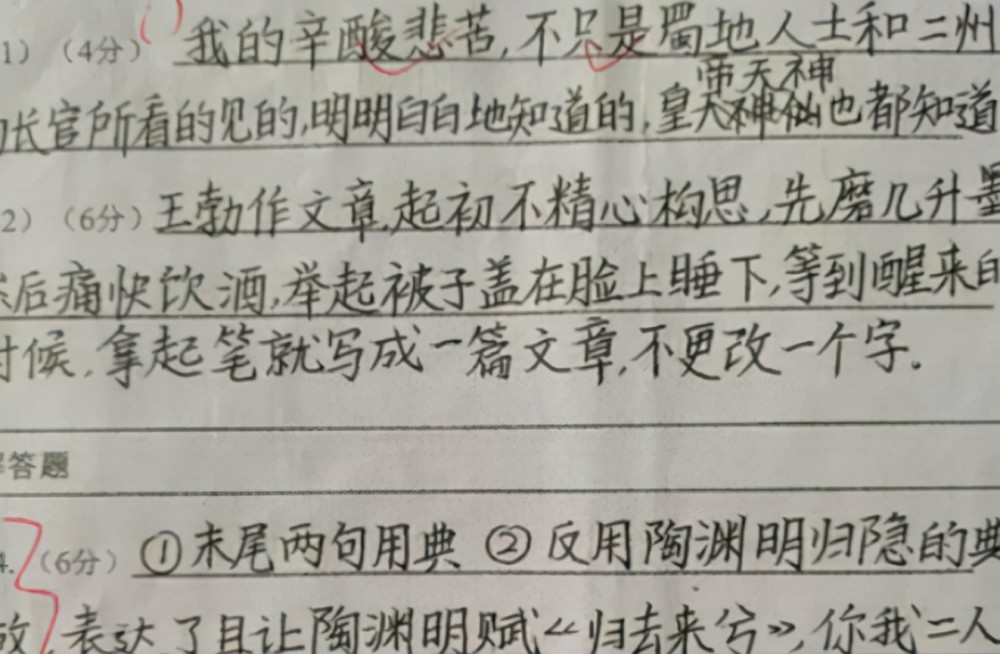 1）（4分）我的辛酸悲苦,不只是蜀地人士和二州
帝天神
长官所看的见的,明明白白地知道的,皇天神仙也都知道
2）（6分）王勃作文章,起初不精心构思,先磨几升墨
后痛快饮酒,举起被子盖在脸上睡下,等到醒来的
时候,拿起笔就写成一篇文章,不更改一个字.
答题
4.（6分）①末尾两句用典 ②反用陶渊明归隐的典
故,表达了且让陶渊明赋《归去来兮》,你我二人